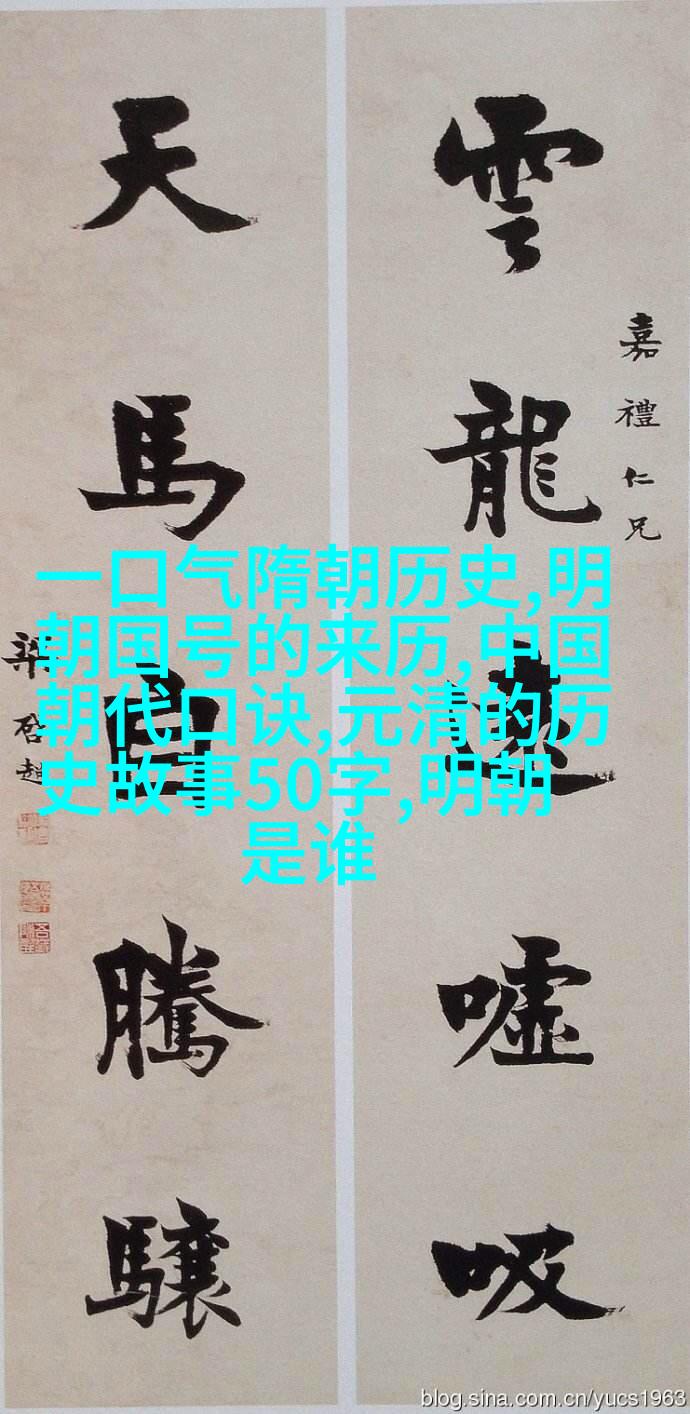 雲龍遠噓吸
嘉禮仁兄
天馬自騰驤
梁启超
一口气隋朝历史,明
朝国号的来历,中国
朝代口诀,元清的历
史故事50字,明朝
是谁
blog.sina.com.cn/yucs1963